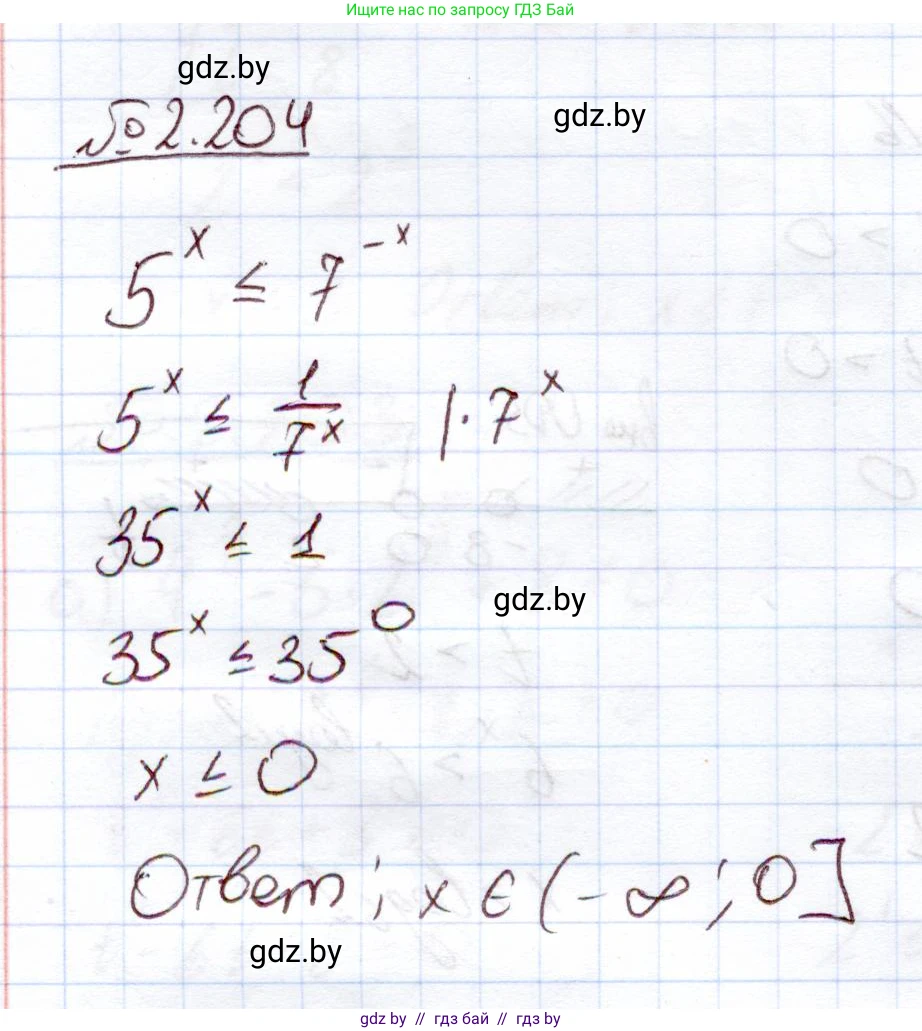 Ищите нас по запросу ГДЗ Бай
gdz.by
№2.204
gdz.by
5^x ≤ 7^-x
5^x ≤ 1/7^x |·7^x
35^x ≤ 1
gdz.by
35^x ≤ 35^0
x ≤ 0
Ответ; x ∈ (-∞; 0]
gdz.by
gdz.by // гдз бай // гдз by